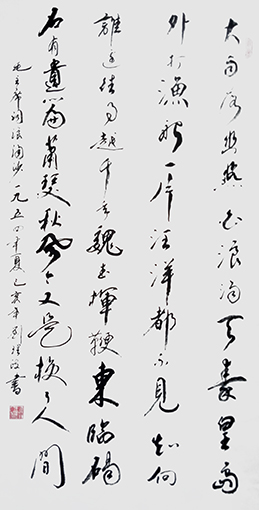 大雨落幽燕白浪滔天秦皇島
外打漁船一片汪洋都不見知向
誰邊往事越千年魏武揮鞭東臨碣
石有遺篇蕭瑟秋風今又是換了人間
毛主席詞浪淘沙一九五四年夏己亥年劉書